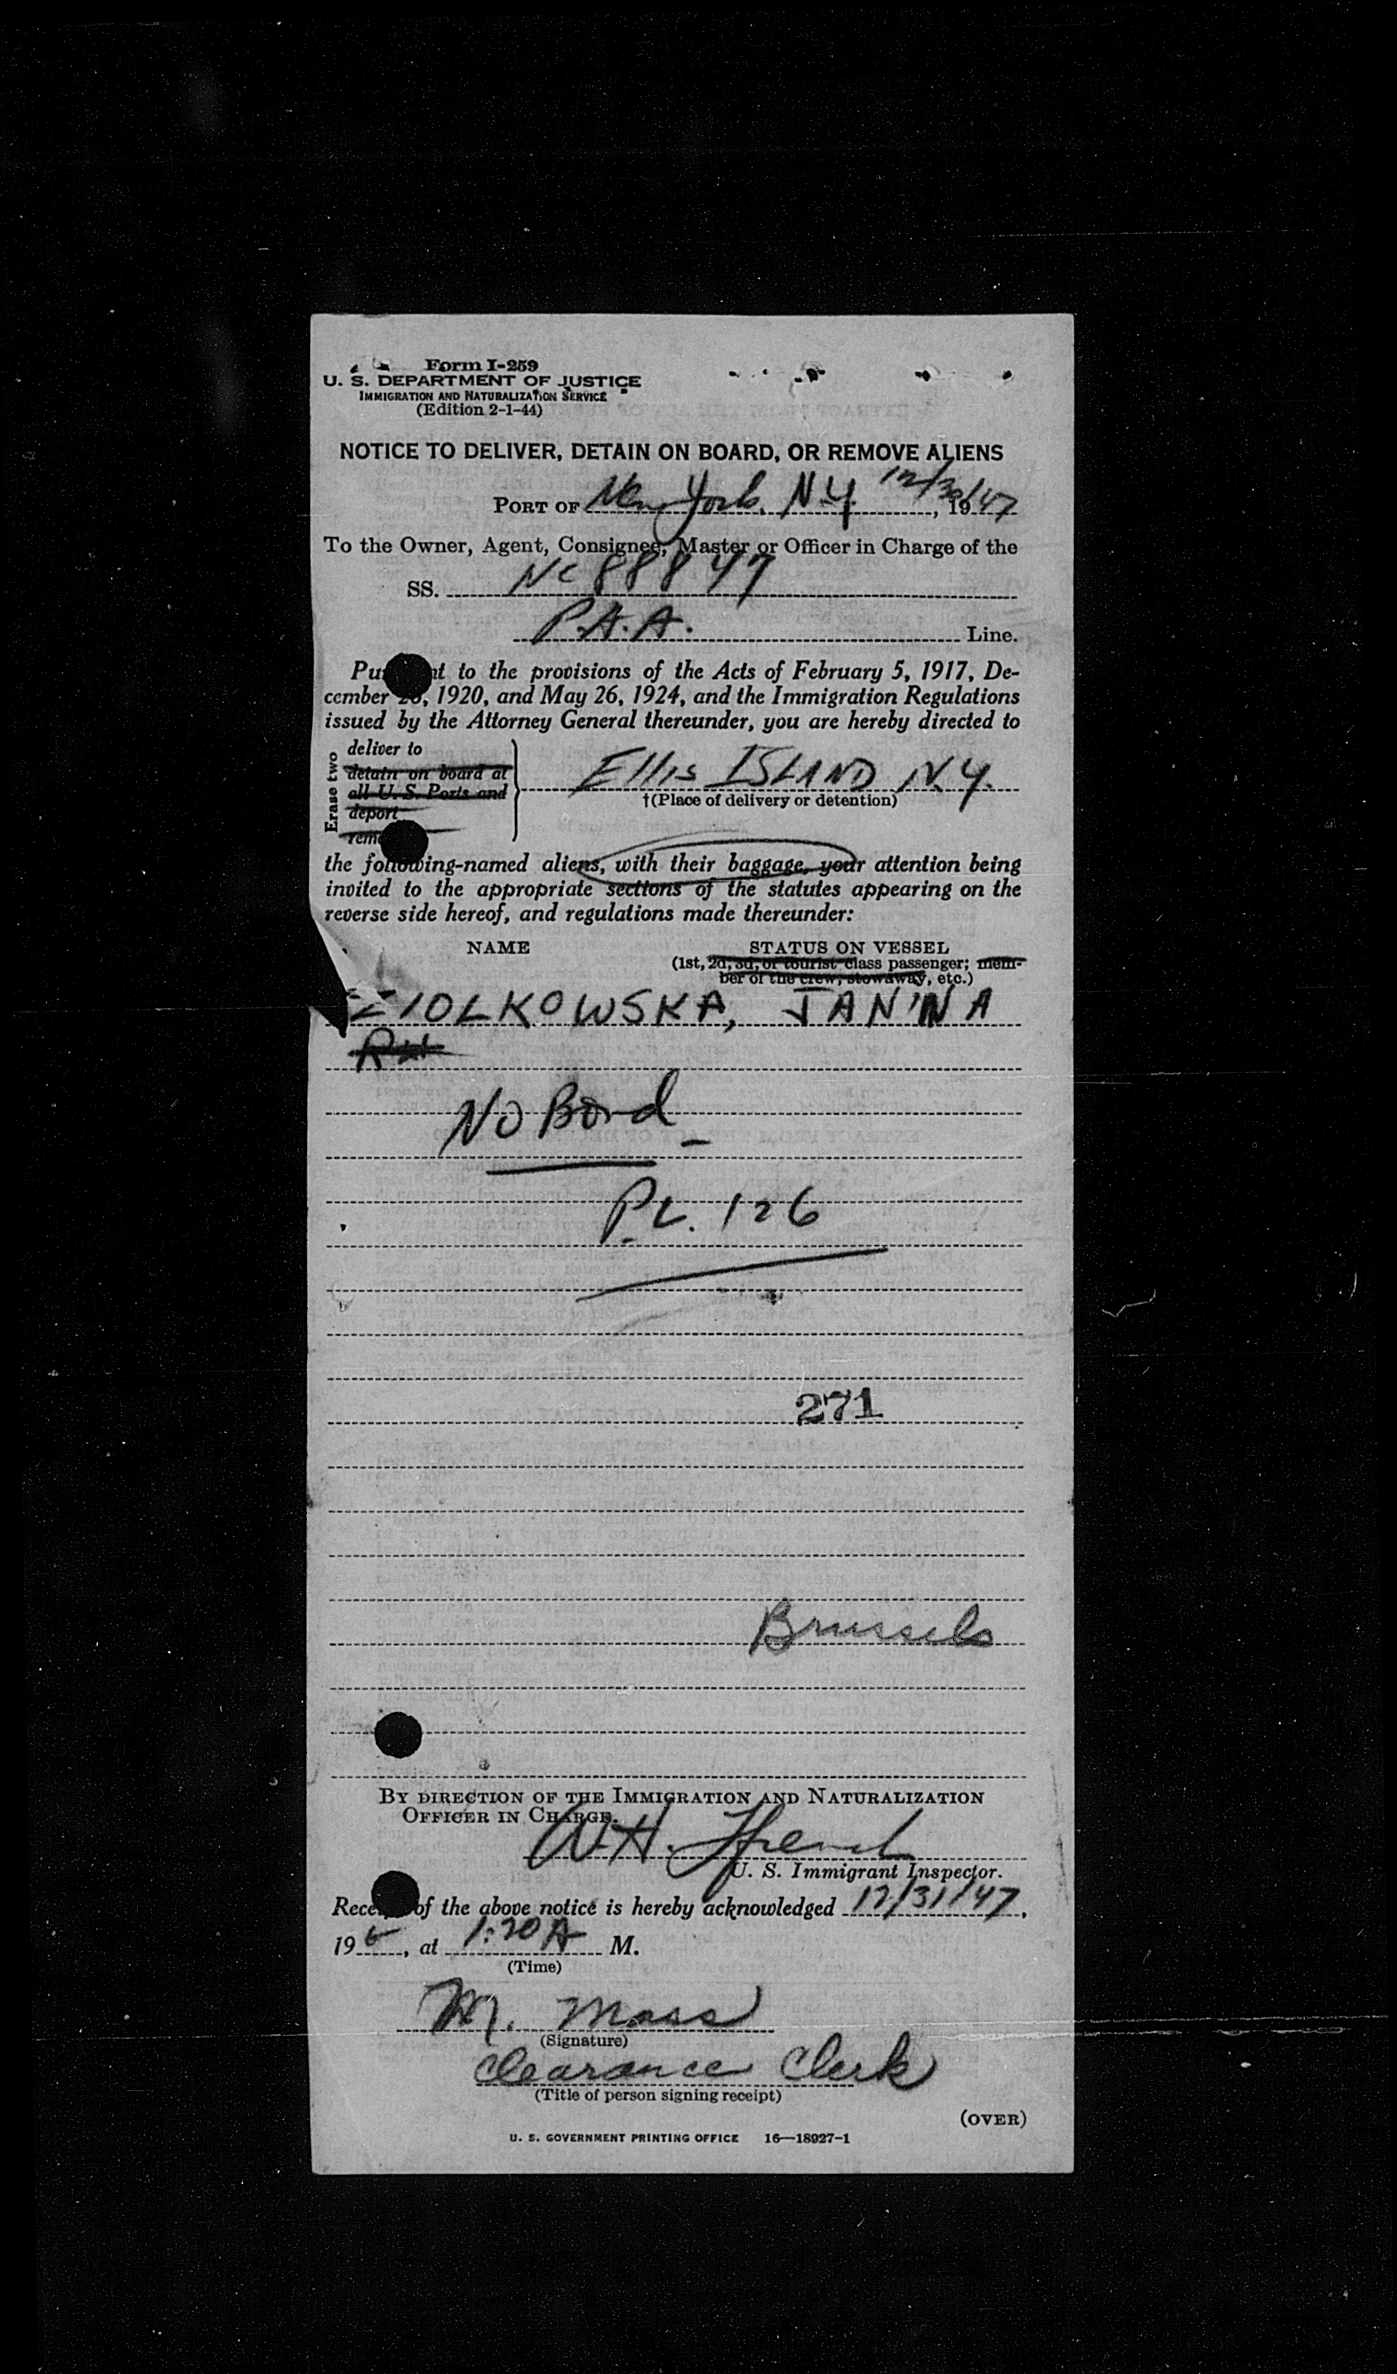 Form I-259
U. S. DEPARTMENT OF JUSTICE
IMMIGRATION AND NATURALIZATION SERVICE
(Edition 2-1-44)
NOTICE TO DELIVER, DETAIN ON BOARD, OR REMOVE ALIENS
PORT OF New York, N.Y. 12/30/47, 19
To the Owner, Agent, Consignee, Master or Officer in Charge of the
SS. NC 88847
P.A.A. Line.
Pu nt to the provisions of the Acts of February 5, 1917, De-
cember 26, 1920, and May 26, 1924, and the Immigration Regulations
issued by the Attorney General thereunder, you are hereby directed to
Erase two
deliver to
detain on board at
all U. S. Ports and
deport
remo
Ellis ISLAND N.Y.
†(Place of delivery or detention)
the following-named aliens, with their baggage, your attention being
invited to the appropriate sections of the statutes appearing on the
reverse side hereof, and regulations made thereunder:
NAME STATUS ON VESSEL
(1st, 2d, 3d, or tourist class passenger; mem-
ber of the crew, stowaway, etc.)
ZIOLKOWSKA, JANINA
No Bond
P.L. 126
271
Brussels
BY DIRECTION OF THE IMMIGRATION AND NATURALIZATION
OFFICER IN CHARGE.
W.H. Ffrench
U. S. Immigrant Inspector.
Rece of the above notice is hereby acknowledged 12/31/47,
19 , at 1:20 A M.
(Time)
M. Moss
(Signature)
Clearance Clerk
(Title of person signing receipt)
(OVER)
U. S. GOVERNMENT PRINTING OFFICE 16—18927-1